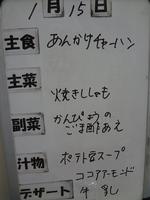 1月15日
主食 あんかけチャーハン
主菜 焼きししゃも
副菜 かんぴょうの
ごま酢あえ
汁物 ポテト豆スープ
ココアアーモンド
デザート 牛乳